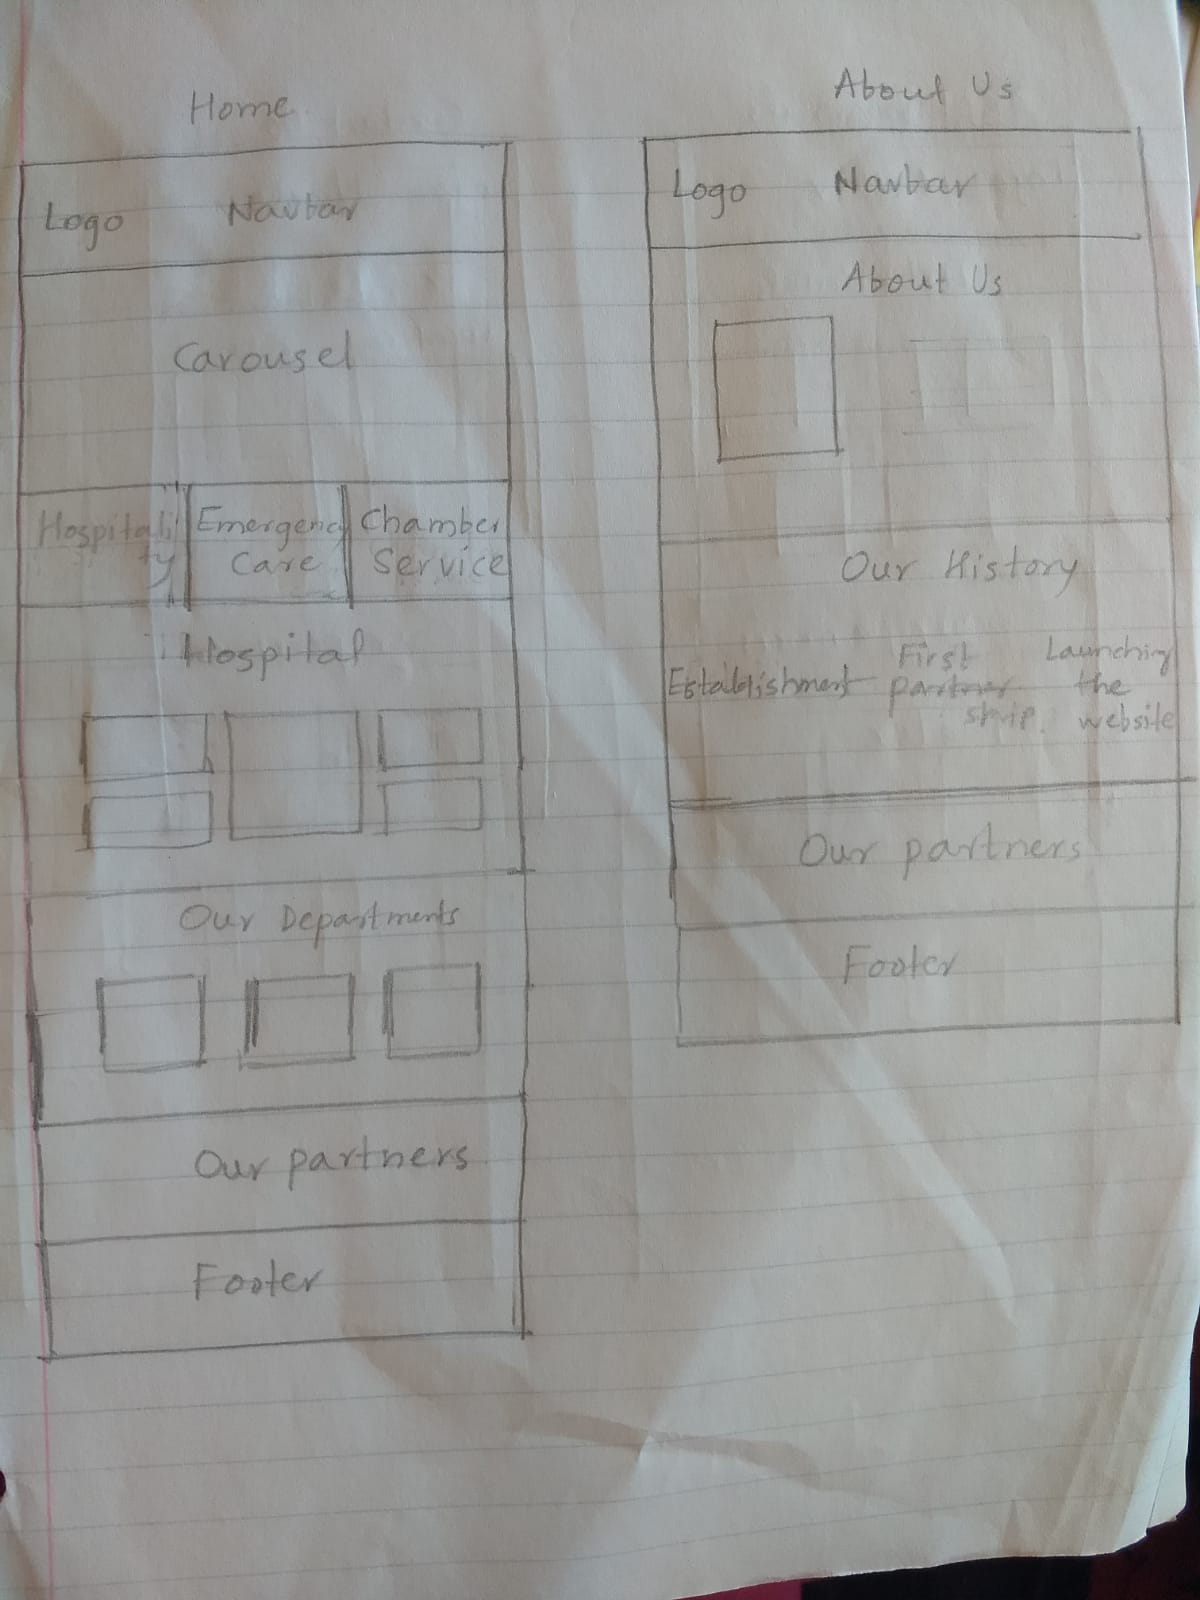 Home
Logo Navbar
Carousel
Hospitali
ty
Emergency
Care
Chamber
Service
Hospital
Our Departments
Our partners
Footer
About Us
Logo Navbar
About Us
Our History
Establishment
First
partner
ship.
Launching
the
website
Our partners
Footer